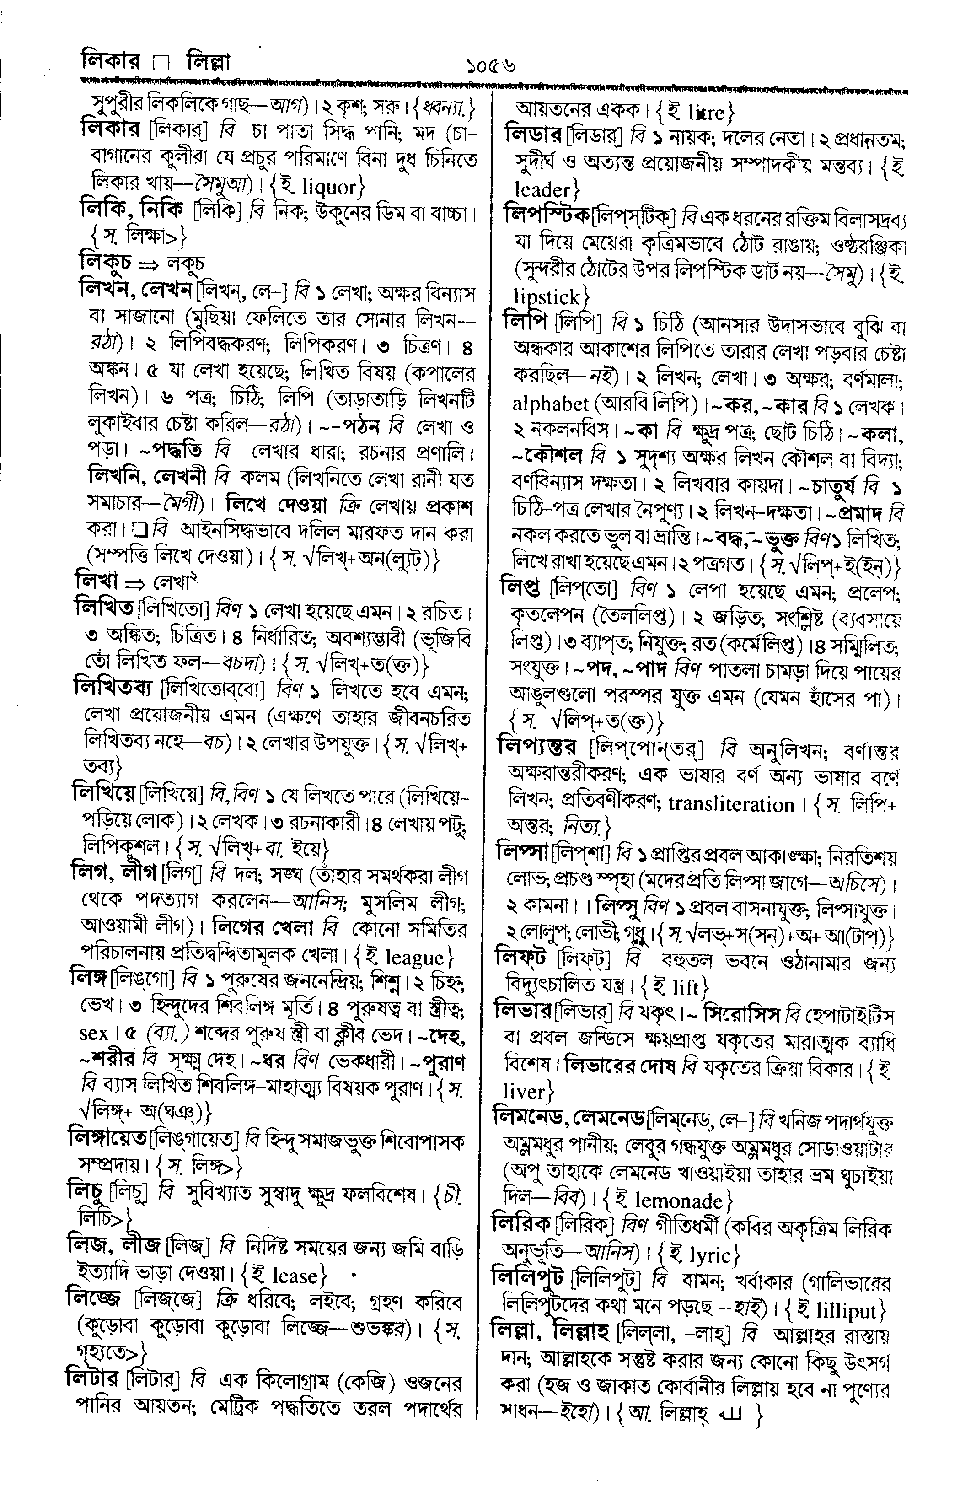 লিকার □ লিল্লা
১০৫৬
সুপুরীর লিকলিকে গাছ—আগ)। ২ কৃশ; সরু। {ধ্বন্য.}
লিকার [লিকার্] বি চা পাতা সিদ্ধ পানি; মদ (চা-
বাগানের কুলীরা যে প্রচুর পরিমাণে বিনা দুধ চিনিতে
লিকার খায়—সৈমুআ)। {ই. liquor}
লিকি, নিকি [লিকি] বি নিক; উকুনের ডিম বা বাচ্চা।
{স. লিক্ষা>}
লিকুচ ⇒ লকুচ
লিখন, লেখন [লিখন্, লে–] বি ১ লেখা; অক্ষর বিন্যাস
বা সাজানো (মুছিয়া ফেলিতে তার সোনার লিখন—
রঠা)। ২ লিপিবদ্ধকরণ; লিপিকরণ। ৩ চিত্রণ। ৪
অঙ্কন। ৫ যা লেখা হয়েছে; লিখিত বিষয় (কপালের
লিখন)। ৬ পত্র; চিঠি; লিপি (তাড়াতাড়ি লিখনটি
লুকাইবার চেষ্টা করিল—রঠা)। ~–পঠন বি লেখা ও
পড়া। ~পদ্ধতি বি লেখার ধারা; রচনার প্রণালি।
লিখনি, লেখনী বি কলম (লিখনিতে লেখা রানী যত
সমাচার—মৈগী)। লিখে দেওয়া ক্রি লেখায় প্রকাশ
করা। □ বি আইনসিদ্ধভাবে দলিল মারফত দান করা
(সম্পত্তি লিখে দেওয়া)। {স. √লিখ্+অন(ল্যুট)}
লিখা ⇒ লেখা২
লিখিত [লিখিতো] বিণ ১ লেখা হয়েছে এমন। ২ রচিত।
৩ অঙ্কিত; চিত্রিত। ৪ নির্ধারিত; অবশ্যম্ভাবী (ভূজিবি
তোঁ লিখিত ফল—বচদা)। {স. √লিখ্+ত(ক্ত)}
লিখিতব্য [লিখিতোব্‌বো] বিণ ১ লিখতে হবে এমন;
লেখা প্রয়োজনীয় এমন (এক্ষণে তাহার জীবনচরিত
লিখিতব্য নহে—বচ)। ২ লেখার উপযুক্ত। {স. √লিখ্+
তব্য}
লিখিয়ে [লিখিয়ে] বি, বিণ ১ যে লিখতে পারে (লিখিয়ে-
পড়িয়ে লোক)। ২ লেখক। ৩ রচনাকারী। ৪ লেখায় পটু;
লিপিকুশল। {স. √লিখ্+ বা. ইয়ে}
লিগ, লীগ [লিগ্] বি দল; সঙ্ঘ (তাহার সমর্থকরা লীগ
থেকে পদত্যাগ করলেন—আনিস; মুসলিম লীগ;
আওয়ামী লীগ)। লিগের খেলা বি কোনো সমিতির
পরিচালনায় প্রতিদ্বন্দিতামূলক খেলা। {ই league}
লিঙ্গ [লিঙ্‌গো] বি ১ পুরুষের জননেন্দ্রিয়; শিশ্ন। ২ চিহ্ন;
ভেখ। ৩ হিন্দুদের শিবলিঙ্গ মূর্তি। ৪ পুরুষত্ব বা স্ত্রীত্ব;
sex। ৫ (ব্যা.) শব্দের পুরুষ স্ত্রী বা ক্লীব ভেদ। ~দেহ,
~শরীর বি সূক্ষ্ম দেহ। ~ধর বিণ ভেকধারী। ~পুরাণ
বি ব্যাস লিখিত শিবলিঙ্গ–মাহাত্ম্য বিষয়ক পুরাণ। {স.
√লিঙ্গ্+ অ(ঘঞ্)}
লিঙ্গায়েত [লিঙ্‌গায়েত্] বি হিন্দু সমাজভুক্ত শিবোপাসক
সম্প্রদায়। {স. লিঙ্গ>}
লিচু [লিচু] বি সুবিখ্যাত সুস্বাদু ক্ষুদ্র ফলবিশেষ। {চী.
লিচি>}
লিজ, লীজ [লিজ্] বি নির্দিষ্ট সময়ের জন্য জমি বাড়ি
ইত্যাদি ভাড়া দেওয়া। {ই lease}
লিজ্জে [লিজ্‌জে] ক্রি ধরিবে; লইবে; গ্রহণ করিবে
(কুড়োবা কুড়োবা কুড়োবা লিজ্জে—শুভঙ্কর)। {স.
গৃহ্যতে>}
লিটার [লিটার্] বি এক কিলোগ্রাম (কেজি) ওজনের
পানির আয়তন; মেট্রিক পদ্ধতিতে তরল পদার্থের
আয়তনের একক। {ই litre}
লিডার [লিডার্] বি ১ নায়ক; দলের নেতা। ২ প্রধানতম;
সুদীর্ঘ ও অত্যন্ত প্রয়োজনীয় সম্পাদকীয় মন্তব্য। {ই.
leader}
লিপস্টিক [লিপ্‌স্‌টিক্] বি এক ধরনের রক্তিম বিলাসদ্রব্য
যা দিয়ে মেয়েরা কৃত্রিমভাবে ঠোঁট রাঙায়; ওষ্ঠরঞ্জিকা
(সুন্দরীর ঠোটের উপর লিপস্টিক ডাট নয়—সৈমু)। {ই.
lipstick}
লিপি [লিপি] বি ১ চিঠি (আনসার উদাসভাবে বুঝি বা
অন্ধকার আকাশের লিপিতে তারার লেখা পড়বার চেষ্টা
করছিল—নই)। ২ লিখন; লেখা। ৩ অক্ষর; বর্ণমালা;
alphabet (আরবি লিপি)। ~কর, ~কার বি ১ লেখক।
২ নকলনবিস। ~কা বি ক্ষুদ্র পত্র; ছোট চিঠি। ~কলা,
~কৌশল বি ১ সুদৃশ্য অক্ষর লিখন কৌশল বা বিদ্যা;
বর্ণবিন্যাস দক্ষতা। ২ লিখবার কায়দা। ~চাতুর্য বি ১
চিঠি-পত্র লেখার নৈপুণ্য। ২ লিখন-দক্ষতা। ~প্রমাদ বি
নকল করতে ভুল বা ভ্রান্তি। ~বদ্ধ, ~ভুক্ত বিণ ১ লিখিত;
লিখে রাখা হয়েছে এমন। ২ পত্রগত। {স. √লিপ্+ই(ইন্)}
লিপ্ত [লিপ্‌তো] বিণ ১ লেপা হয়েছে এমন; প্রলেপ;
কৃতলেপন (তৈললিপ্ত)। ২ জড়িত; সংশ্লিষ্ট (ব্যবসায়ে
লিপ্ত)। ৩ ব্যাপৃত; নিযুক্ত; রত (কর্মে লিপ্ত)। ৪ সম্মিলিত;
সংযুক্ত। ~পদ, ~পাদ বিণ পাতলা চামড়া দিয়ে পায়ের
আঙুলগুলো পরস্পর যুক্ত এমন (যেমন হাঁসের পা)।
{স. √লিপ্+ত(ক্ত)}
লিপ্যন্তর [লিপ্‌পোন্‌তর্] বি অনুলিখন; বর্ণান্তর
অক্ষরান্তরীকরণ; এক ভাষার বর্ণ অন্য ভাষার বর্ণে
লিখন; প্রতিবর্ণীকরণ; transliteration। {স. লিপি+
অন্তর; নিত্য.}
লিপ্সা [লিপ্‌শা] বি ১ প্রাপ্তির প্রবল আকাঙ্ক্ষা; নিরতিশয়
লোভ; প্রচণ্ড স্পৃহা (মদের প্রতি লিপ্সা জাগে—অচিসে)।
২ কামনা। । লিপ্সু বিণ ১ প্রবল বাসনাযুক্ত; লিপ্সাযুক্ত।
২ লোলুপ; লোভী; গৃধ্নু। {স. √লভ্+স(সন্)+অ+ আ(টাপ)}
লিফ্‌ট [লিফ্‌ট্] বি বহুতল ভবনে ওঠানামার জন্য
বিদ্যুৎচালিত যন্ত্র। {ই lift}
লিভার [লিভার্] বি যকৃৎ। ~ সিরোসিস বি হেপাটাইটিস
বা প্রবল জন্ডিসে ক্ষয়প্রাপ্ত যকৃতের মারাত্মক ব্যাধি
বিশেষ। লিভারের দোষ বি যকৃতের ক্রিয়া বিকার। {ই
liver}
লিমনেড, লেমনেড [লিম্‌নেড্, লে–] বি খনিজ পদার্থযুক্ত
অম্লমধুর পানীয়; লেবুর গন্ধযুক্ত অম্লমধুর সোডাওয়াটার
(অপু তাহাকে লেমনেড খাওয়াইয়া তাহার ভ্রম ঘুচাইয়া
দিল—বিব)। {ই lemonade}
লিরিক [লিরিক্] বিণ গীতিধর্মী (কবির অকৃত্রিম লিরিক
অনুভূতি—আনিস)। {ই lyric}
লিলিপুট [লিলিপুট্] বি বামন; খর্বাকার (গালিভারের
লিলিপুটদের কথা মনে পড়ছে—হাই)। {ই lilliput}
লিল্লা, লিল্লাহ [লিল্‌লা, –লাহ্] বি আল্লাহর রাস্তায়
দান; আল্লাহকে সন্তুষ্ট করার জন্য কোনো কিছু উৎসর্গ
করা (হজ ও জাকাত কোর্বানীর লিল্লায় হবে না পুণ্যের
সাধন—ইহো)। {আ. লিল্লাহ্ لله }